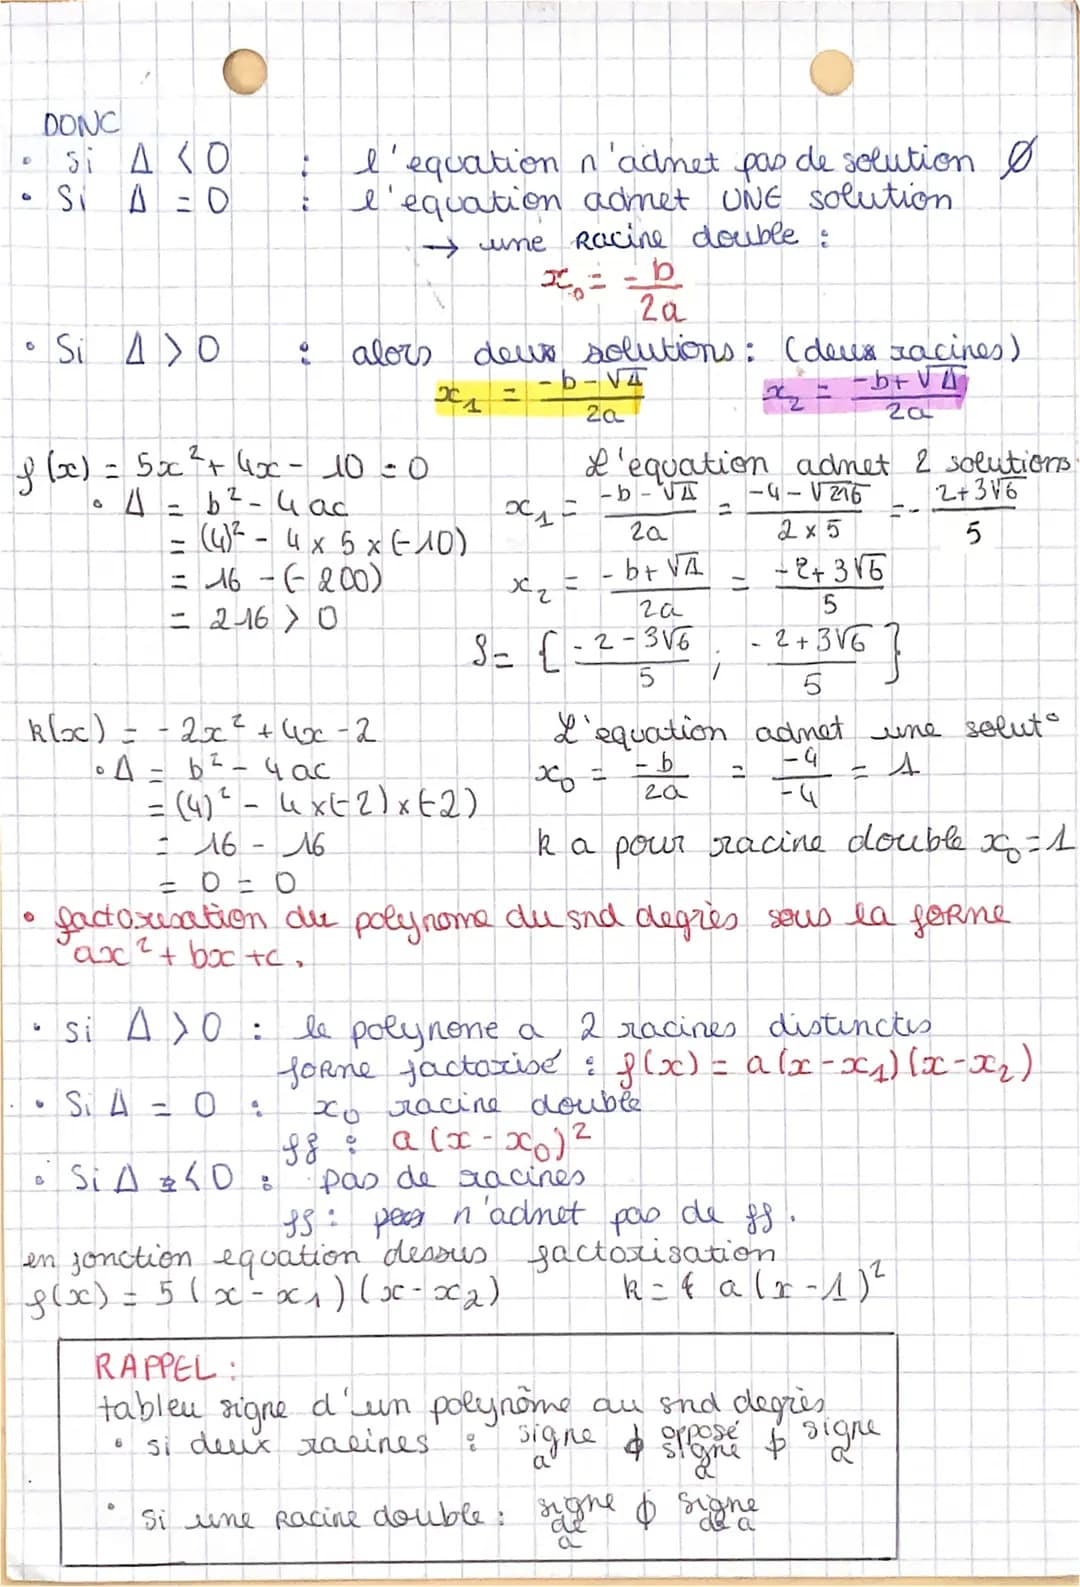 DONC
• Si Δ < 0 : l'equation n'admet pas de solution Ø
• Si Δ = 0 : l'equation admet UNE solution
→ une Racine double :
x₀ = -b/2a
• Si Δ > 0 : alors deux solutions : (deux racines)
x₁ = (-b-√Δ)/2a x₂ = (-b+√Δ)/2a
f(x) = 5x² + 4x - 10 = 0 L'equation admet 2 solutions
• Δ = b² - 4ac x₁ = (-b-√Δ)/2a = (-4-√216)/(2×5) = -(2+3√6)/5
= (4)² - 4 × 5 × (-10)
= 16 - (-200) x₂ = (-b+√Δ)/2a = (-2+3√6)/5
= 216 > 0
S = { (-2-3√6)/5 ; (-2+3√6)/5 }
k(x) = -2x² + 4x - 2 L'equation admet une solut°
• Δ = b² - 4ac x₀ = -b/2a = -4/-4 = 1
= (4)² - 4×(-2)×(-2)
= 16 - 16 k a pour racine double x₀ = 1
= 0 = 0
• factorisation du polynome du snd degrès sous la forme
ax² + bx + c.
• si Δ > 0 : le polynome a 2 racines distinctes
forme factorisé : f(x) = a(x-x₁)(x-x₂)
• Si Δ = 0 : x₀ racine double
ff : a(x-x₀)²
• Si Δ < 0 : pas de racines
ff : n'admet pas de ff.
en fonction equation dessus factorisation
f(x) = 5(x-x₁)(x-x₂) k = a(x-1)²
RAPPEL :
tableu signe d'un polynôme au snd degrès
• si deux racines : signe a ϕ opposé signe a ϕ signe a
• Si une Racine double : signe de a ϕ signe de a